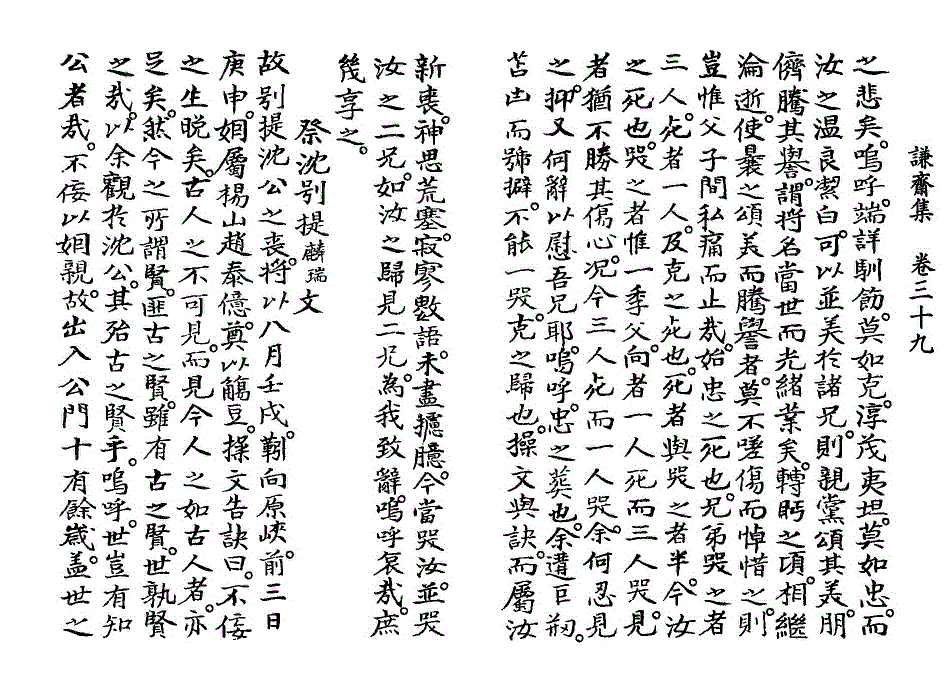 謙齋集 卷三十九
之悲矣。嗚呼。端詳馴飭。莫如克。淳茂夷坦。莫如忠。而
汝之温良潔白。可以並美於諸兄。則親黨頌其美。朋
儕騰其譽。謂將名當世而光緖業矣。轉眄之頃。相繼
淪逝。使曩之頌美而騰譽者。莫不嗟傷而悼惜之。則
豈惟父子間私痛而止哉。始忠之死也。兄弟哭之者
三人。死者一人。及克之死也。死者與哭之者半。今汝
之死也。哭之者惟一季父。向者一人死而三人哭。見
者猶不勝其傷心。况今三人死而一人哭。余何忍見
之。抑又何辭以慰吾兄耶。嗚呼。忠之葬也。余遭叩刱。
苫凷而號擗。不能一哭。克之歸也。操文與訣。而屬汝
新喪。神思荒塞。寂寥數語。未盡攄臆。今當哭汝。並哭
汝之二兄。如汝之歸見二兄。為我致辭。嗚呼哀哉。庶
幾享之。
祭沈別提麟瑞文
故別提沈公之喪。將以八月壬戌。靷向原峽。前三日
庚申。姻屬楊山趙泰億。奠以觴豆。操文告訣曰。不佞
之生晩矣。古人之不可見。而見今人之如古人者。亦
足矣。然今之所謂賢。匪古之賢。雖有古之賢。世孰賢
之哉。以余觀於沈公。其殆古之賢乎。嗚呼。世豈有知
公者哉。不佞以姻親。故出入公門十有餘歲。盖世之